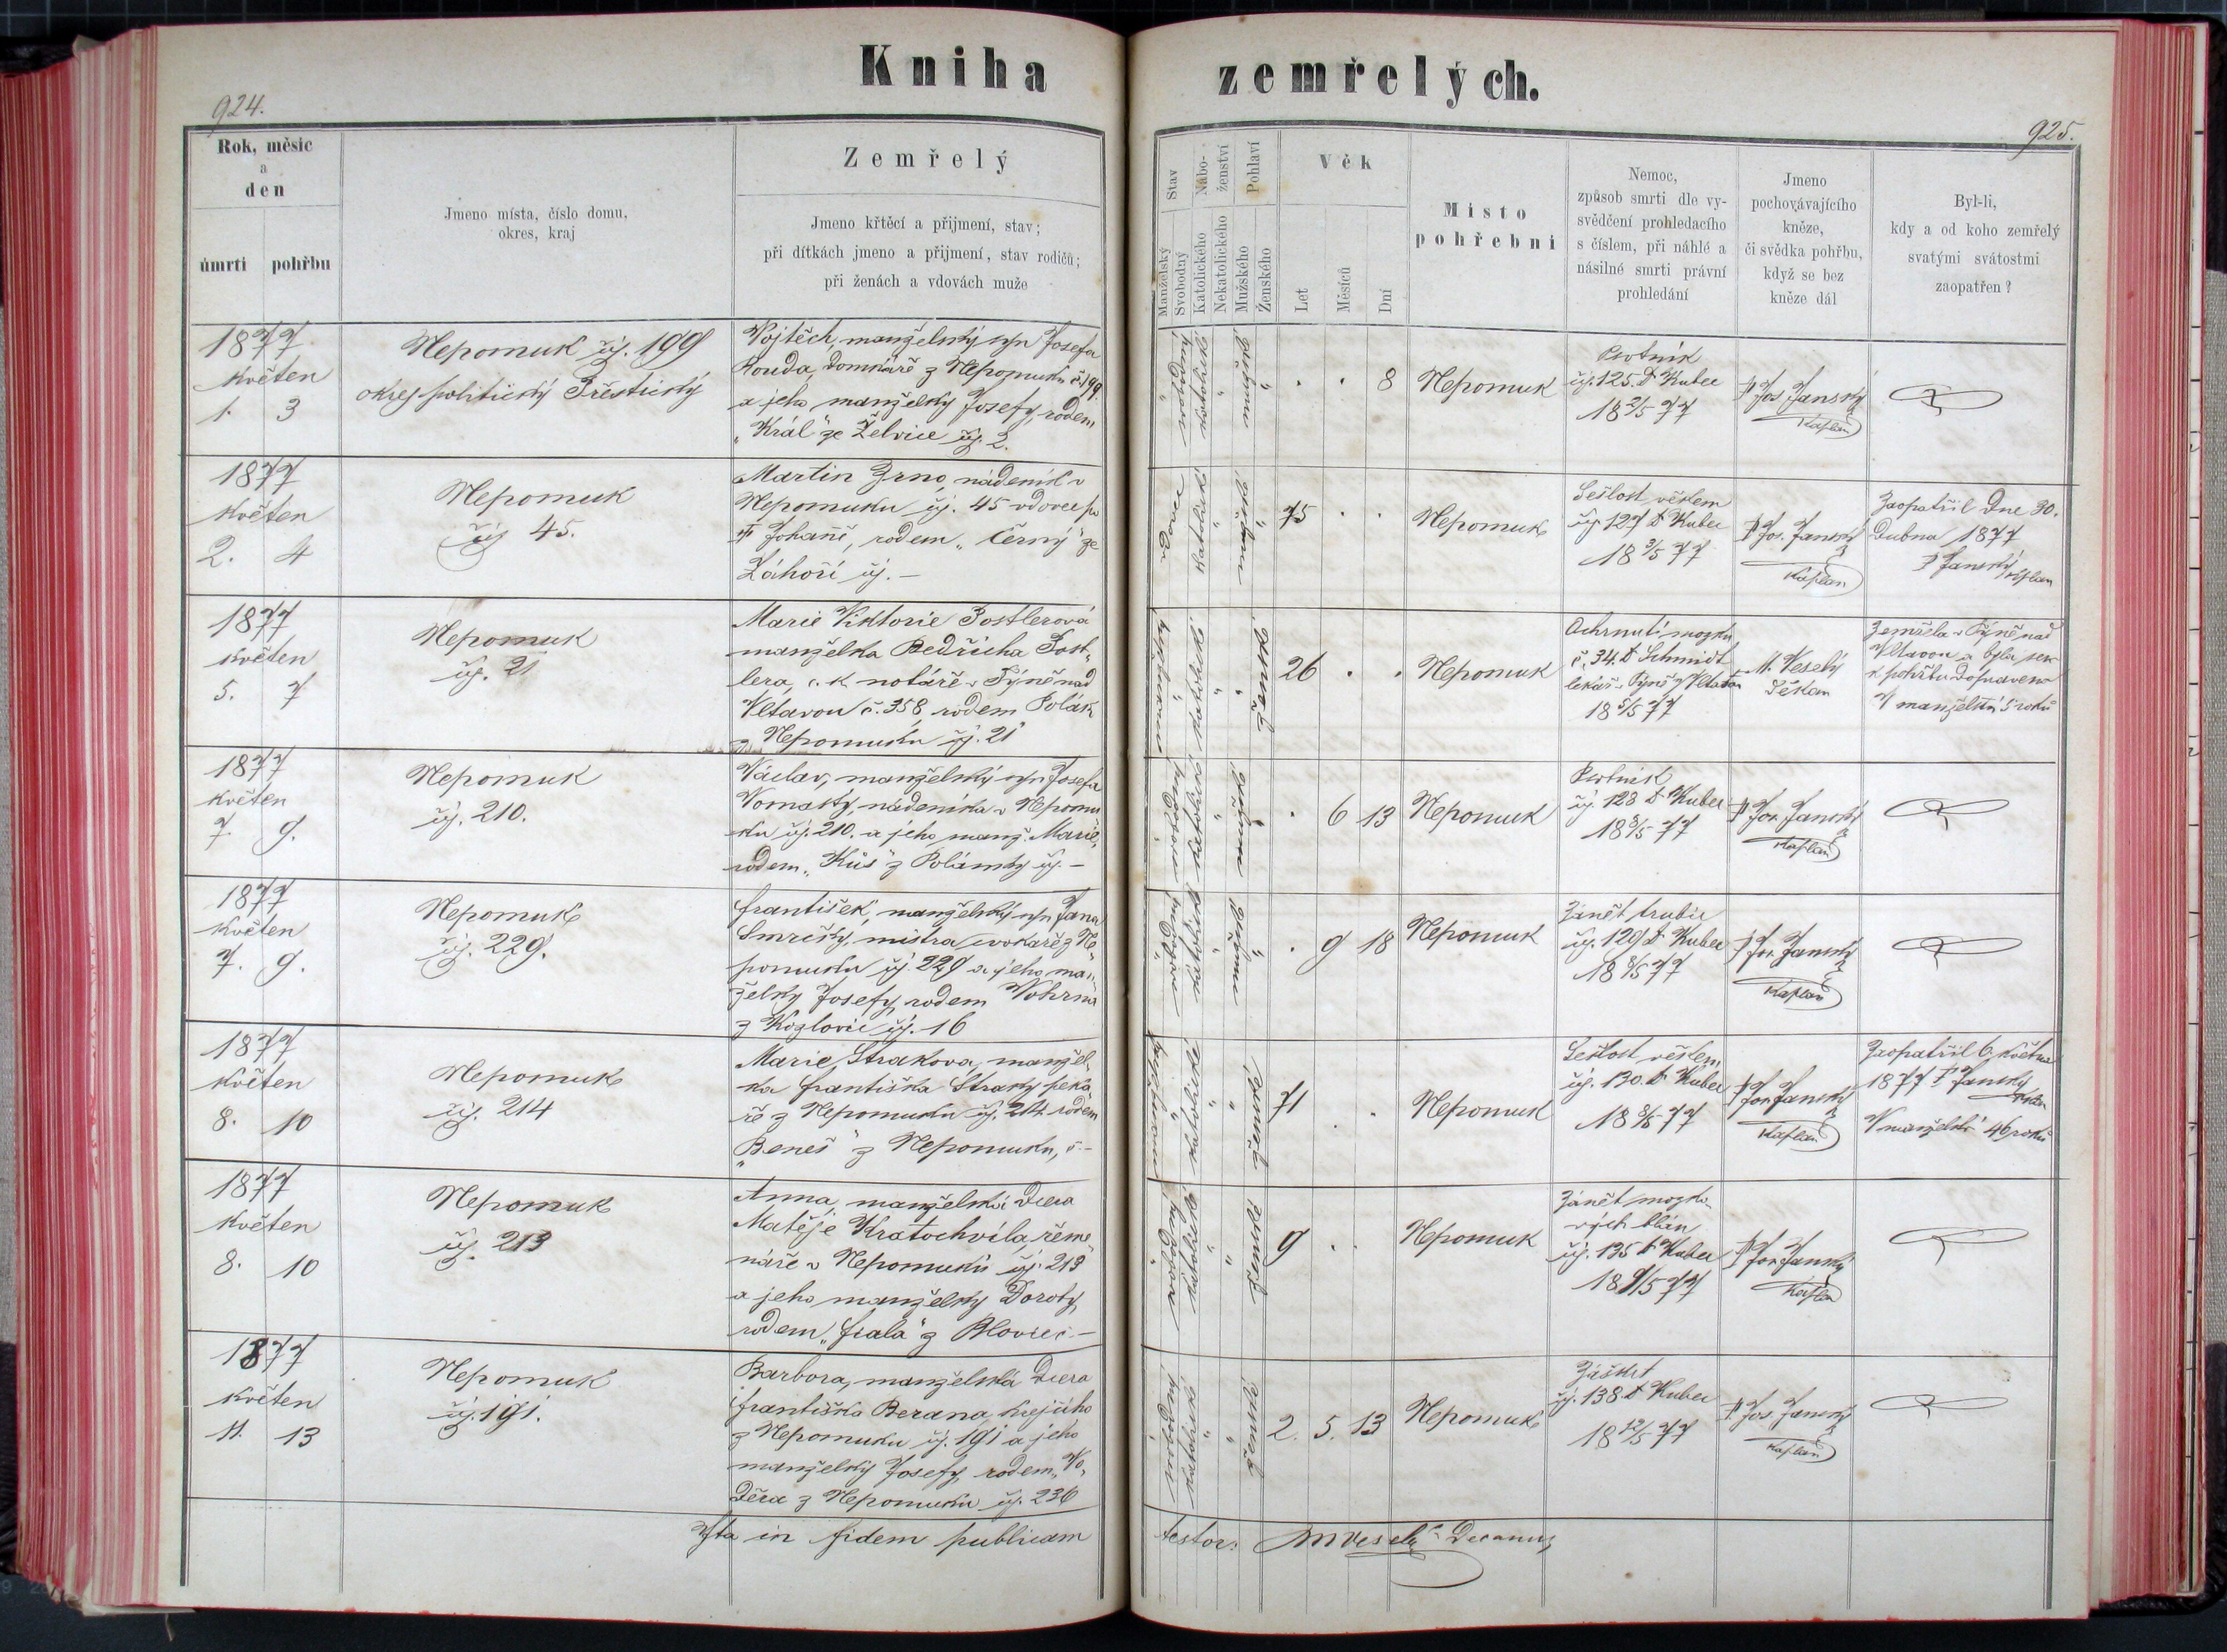 Kniha zemřelých.
924.
925.
Rok, měsíc
a
den
úmrtí
pohřbu
Jmeno místa, číslo domu,
okres, kraj
Zemřelý
Jmeno křtěcí a přijmení, stav;
při dítkách jmeno a přijmení, stav rodičů;
při ženách a vdovách muže
Stav
Manželský
Svobodný
Nábo-
ženství
Katolického
Nekatolického
Pohlaví
Mužského
Ženského
Věk
Let
Měsíců
Dní
Místo
pohřební
Nemoc,
způsob smrti dle vy-
svědčení prohledacího
s číslem, při náhlé a
násilné smrti právní
prohledání
Jmeno
pochovávajícího
kněze,
či svědka pohřbu,
když se bez
kněze dál
Byl-li,
kdy a od koho zemřelý
svatými svátostmi
zaopatřen?
1877
květen
1. 3
Nepomuk čj. 199
okres politický Přeštický
Vojtěch, manželský syn Josefa
Rouda, domkáře z Nepomuku č. 199
a jeho manželky Josefy, rodem
„Král" ze Želvice čj. 2.
8
Nepomuk
Psotník
čj. 125. D. Kubec
18 2/5 77
P Jos. Janský
Kaplan
1877
květen
2. 4
Nepomuk
čj 45.
Martin Zrno, nádeník v
Nepomuku čj. 45 vdovec po
Johaně, rodem „Černý" ze
Záhoří čj. –
vdovec
katolické
75
Nepomuk
Sešlost věkem
čj 127 D. Kubec
18 3/5 77
P Jos. Janský
Kaplan
Zaopatřil Dne 30.
Dubna 1877
P Janský kaplan
1877
květen
5. 7
Nepomuk
čj. 21
Marie Viktorie Postlerová
manželka Bedřicha Post„
lera, c. k. notáře v Týně nad
Vltavou č. 358, rodem Polák
z Nepomuku čj. 21
ženské
26
Nepomuk
Ochrnutí mozku
č. 34. D Schmidt
lékař v Týně n/Vltavou
18 5/5 77
M. Veselý
Děkan
Zemřela v Týně nad
Vltavou a byla sem
k pohřbu dopravena
V manželství 5 roků
1877
květen
7. 9.
Nepomuk
čj. 210.
Václav, manželský syn Josefa
Vomasty, nádeníka v Nepomu
ku čj. 210. a jeho manž. Marie,
rodem „Kůs" z Polánky čj. –
6 13
Nepomuk
Psotník
čj. 128 D. Kubec
18 8/5 77
P Jos. Janský
Kaplan
1877
květen
7. 9.
Nepomuk
čj. 229.
František, manželský syn Jana
mistra z Ne
pomuku čj. 229 a jeho man„
želky Josefy, rodem
z Kozlovic čj. 16
9 18
Nepomuk
Zánět trubic
čj. 129 D. Kubec
18 8/5 77
P Jos. Janský
Kaplan
1877
květen
8. 10
Nepomuk
čj. 214
Marie Straková, manžel„
ka Františka Straky peka
ře z Nepomuku čj. 214 rodem
„Beneš" z Nepomuku, č –
ženské
71
Nepomuk
Sešlost věkem
čj. 130. D. Kubec
18 8/5 77
P Jos. Janský
Kaplan
Zaopatřil 6. května
1877 P Janský
kaplan
V manželství 46 roků
1877
květen
8. 10
Nepomuk
čj. 213
Anna, manželská dcera
Matěje Kratochvíla, řeme„
náře v Nepomuku čj. 213
a jeho manželky Doroty,
rodem „Fiala" z Blovic č –
ženské
9
Nepomuk
Zánět mozko
vých blán
čj. 135 D. Kubec
18 9/5 77
P Jos. Janský
Kaplan
1877
květen
11. 13
Nepomuk
čj. 191.
Barbora, manželská dcera
Františka Berana, krejčího
z Nepomuku čj. 191 a jeho
manželky Josefy, rodem „Vo„
děra z Nepomuku čj. 236
ženské
2. 5. 13
Nepomuk
Záškrt
čj. 138 D. Kubec
18 12/5 77
P Jos. Janský
Kaplan
Ita in fidem publicam testor: M Veselý Decanus